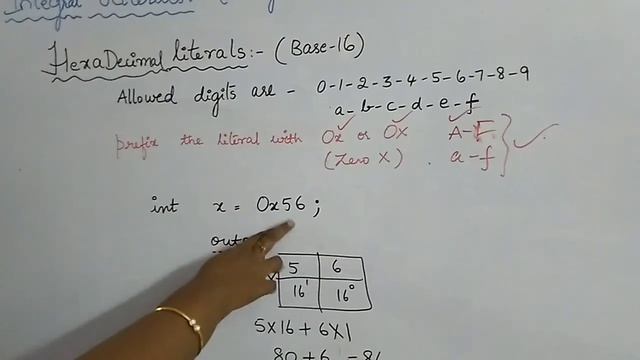 Integral literals
HexaDecimal literals:- (Base-16)
Allowed digits are - 0-1-2-3-4-5-6-7-8-9
a-b-c-d-e-f
prefix the literal with 0x or 0X A-F
(Zero X) . a-f
int x = 0x56 ;
5 6
16¹ 16⁰
5X16 + 6X1
80 + 6